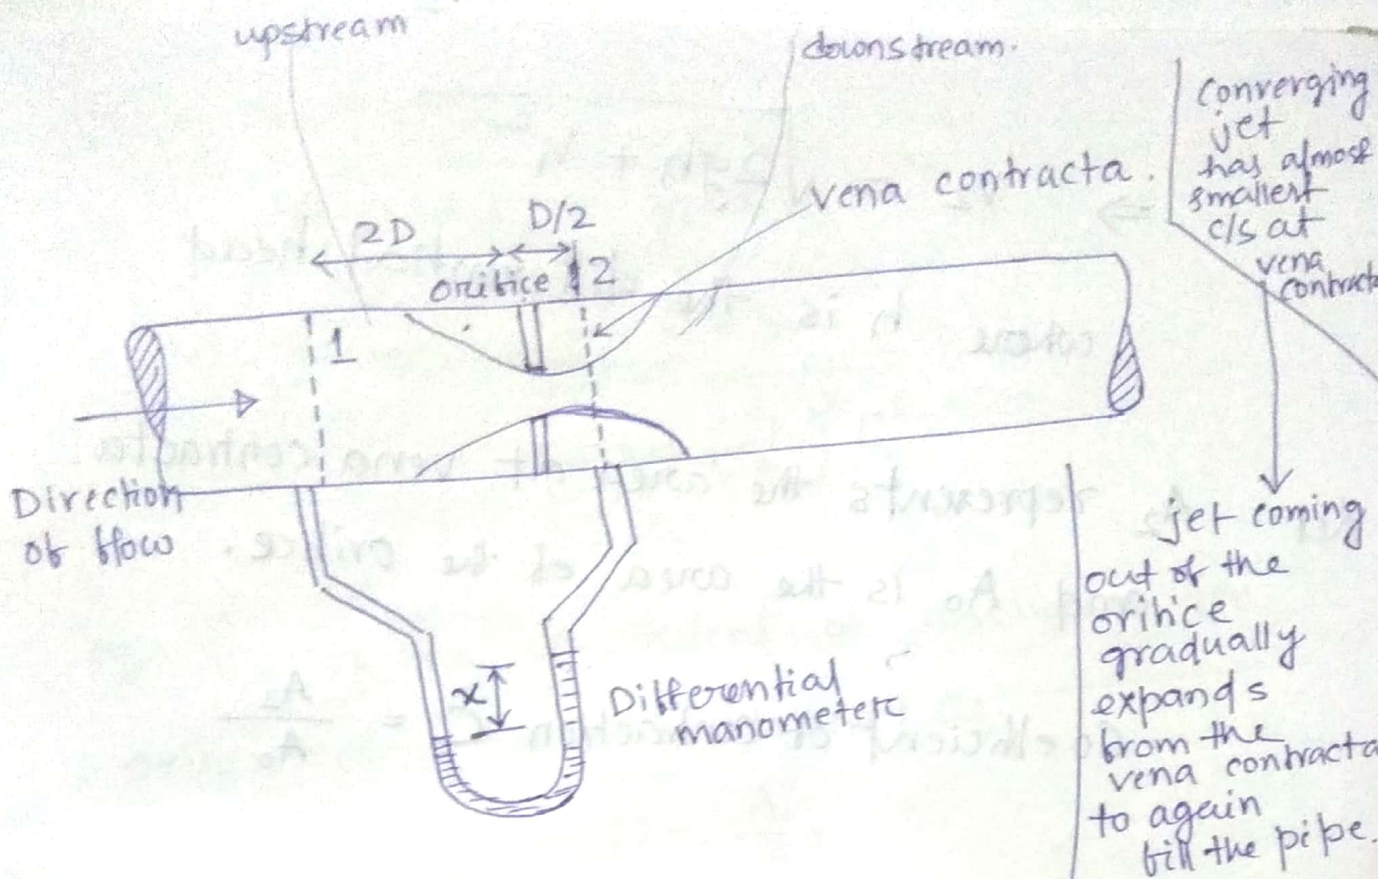 upstream
downstream.
vena contracta.
converging
jet
has almost
smallest
c/s at
vena
contracta
2D
D/2
orifice
2
1
Direction
of flow
x
Differential
manometer
jet coming
out of the
orifice
gradually
expands
from the
vena contracta
to again
fill the pipe.